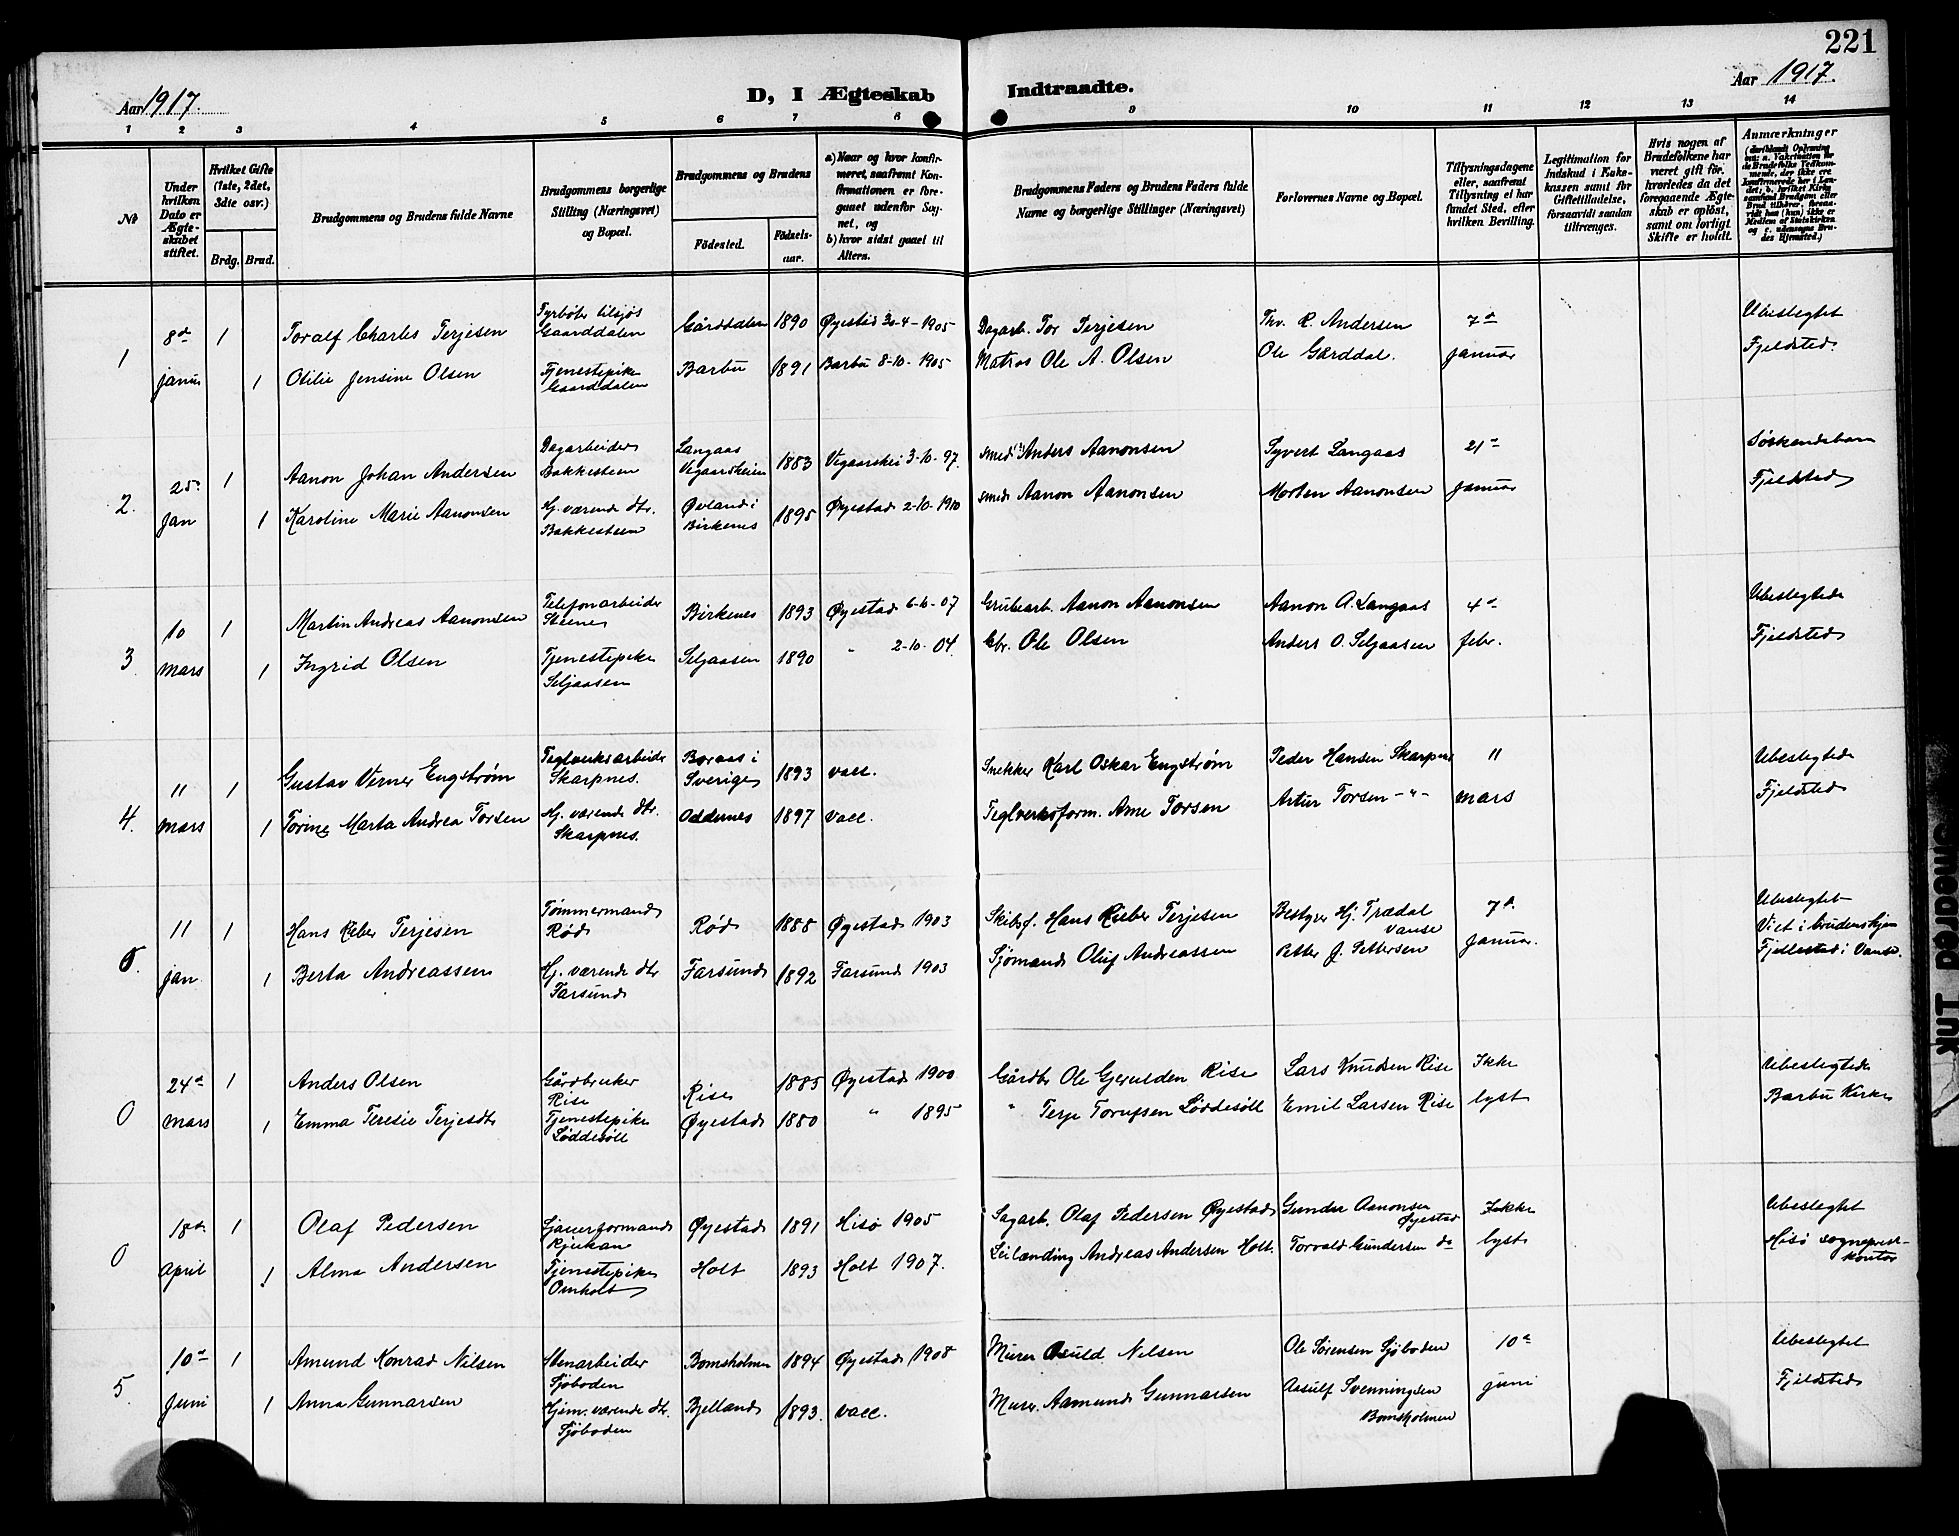 221
Aar 1917.
D, I Ægteskab Indtraadte.
Aar 1917.
1 2 3 4 5 6 7 8 9 10 11 12 13 14
No
Under hvilken Dato er Ægteskabet stiftet.
Hvilket Gifte (1ste, 2det, 3die osv.)
Brdg. Brud.
Brudgommens og Brudens fulde Navne
Brudgommens borgerlige Stilling (Næringsvei) og Bopæl.
Brudgommens og Brudens
Födested. Födselsaar.
a) Naar og hvor konfirmeret, saafremt Konfirmationen er foregaaet udenfor Sognet, og
b) hvor sidst gaaet til Alters.
Brudgommens Faders og Brudens Faders fulde Navne og borgerlige Stillinger (Næringsvei)
Forlovernes Navne og Bopæl.
Tillysningsdagene eller, saafremt Tillysning ei har fundet Sted, efter hvilken Bevilling.
Legitimation for Indskud i Enkekassen samt for Giftetilladelse, forsaavidt saadan tiltrænges.
Hvis nogen af Brudefolkene har været gift för, hvorledes da det foregaaende Ægteskab er oplöst, samt om lovligt Skifte er holdt.
Anmærkninger
1
8de januar
1
Toralf Charles Terjesen
Fyrbøter tilsjøs Gaarddalen
Gårddalen 1890 Øyestad 30-4-1905
Dagarb. Tor Terjesen
Thv. R. Andersen
7de januar
Ubeslegtet
Fjeldsted.
1
Otilie Jensine Olsen
Tjenestepike Gaarddalen
Barbu 1891 Barbu 8-10-1905
Matros Ole A. Olsen
Ole Gårddal.
2.
25de Jan
1
Aanon Johan Andersen
Dagarbeider Bakkesteen
Langaas Vegaarsheien 1883 Vegaarshei 3-10-97.
smed Anders Aanonsen
Syvert Langaas
21de januar
Søskendebarn
Fjeldsted
1
Karoline Marie Aanonsen
Hj. værende dtr. Bakkesteen
Øvland i Birkenes 1895 Øyestad 2-10-1910
smed Aanon Aanonsen
Morten Aanonsen
3
10 mars
1
Martin Andreas Aanonsen
Telefonarbeider Steene
Birkenes 1893 Øyestad 6-10-07
Grubearb. Aanon Aanonsen
Aanon A. Langaas
4de febr.
Ubeslegtede
Fjeldsted
1
Ingrid Olsen
Tjenestepike Seljaasen
Seljaasen 1890 " 2-10-04
Gbr. Ole Olsen
Anders O. Seljaasen
4.
11 mars
1
Gustav Verner Engstrøm
Teglverksarbeider Skarpnes.
Boraas i Sverige 1893 vacc.
Snekker Karl Oskar Engstrøm
Peder Hansen Skarpnes
11 mars
Ubeslegtede
Fjeldsted
1
Torine Marta Andrea Torsen
Hj. værende dtr. Skarpnes.
Oddernes 1897 vacc.
Teglverksform. Arne Torsen
Artur Torsen -"-
11 jan
1
Hans Rieber Terjesen
Tømmermand Rød
Rød 1888 Øyestad 1903
Skibsf. Hans Rieber Terjesen
Bestyrer Hj. Trædal Vanse
7de januar.
Ubeslegtet
Viet i brudens hjem
Fjellestad i Vanse.
1
Berta Andreassen
Hj. værende dtr Farsund
Farsund 1892 Farsund 1903
Sjømand Oluf Andreassen
Petter J. Pettersen
0
24de mars
1
Anders Olsen
Gårdbruker Rise
Rise 1885 Øyestad 1900
Gårdbr Ole Gjeruldsen Rise
Lars Knudsen Rise
Ikke lyst
Ubeslegtede
Barbu Kirke
1
Emma Teresie Terjesdtr
Tjenestepike Løddesøll
Øyestad 1880 " 1895
" Terje Torufsen Løddesöll
Emil Larsen Rise
0
18de April
1
Olaf Pedersen
Sjauerformand Rjukan
Øyestad 1891 Hisö 1905
Sagarb. Olaf Pedersen Øyestad
Gunder Aanonsen Øyestad
Ikke lyst
Ubeslegtet
Hisö sogneprestkontor
1
Alma Andersen
Tjenestepike Omholt
Holt 1893 Holt 1907.
Leilænding Andreas Andersen Holt.
Torvald Gundersen do
5
10de Juni
1
Amund Konrad Nilsen
Stenarbeider Sjøboden
Bomsholmen 1894 Øyestad 1908
Murer Osuld Nilsen
Ole Sørensen Sjøboden
10de juni
Ubeslegtet
Fjeldsted
1
Anna Gunnarsen
Hjem. værende dtr. Sjøboden
Bjelland 1893. vacc.
Murer. Aamund Gunnarsen
Assulf Svenningsen Bomsholmen